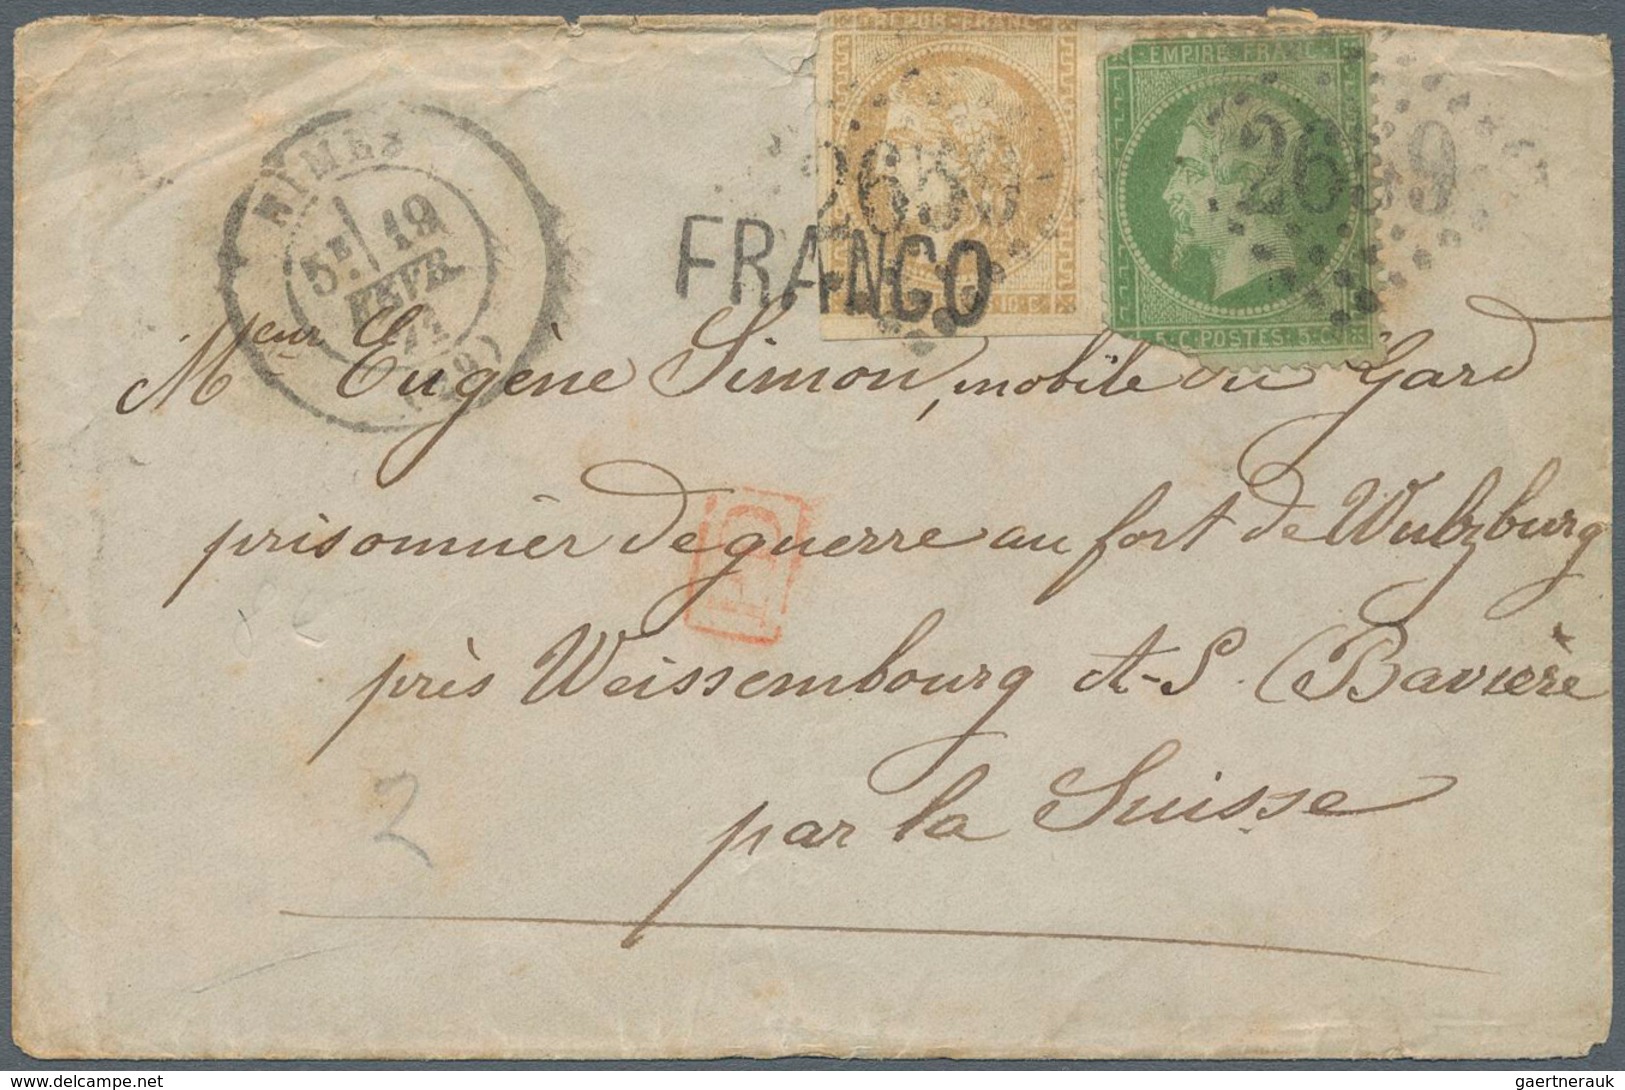 REPUB. FRANC.
EMPIRE FRANC.
2659
2659
NIMES
5E 19
FEVR.
71
FRANCO
10.C
5.C.POSTES.5.C
Meur Eugène Simon, mobile du Gard
prisonnier de guerre au fort de Wulzburg
PD
près Weissembourg A-S. (Bavière
par la Suisse
2
gaertnerauk